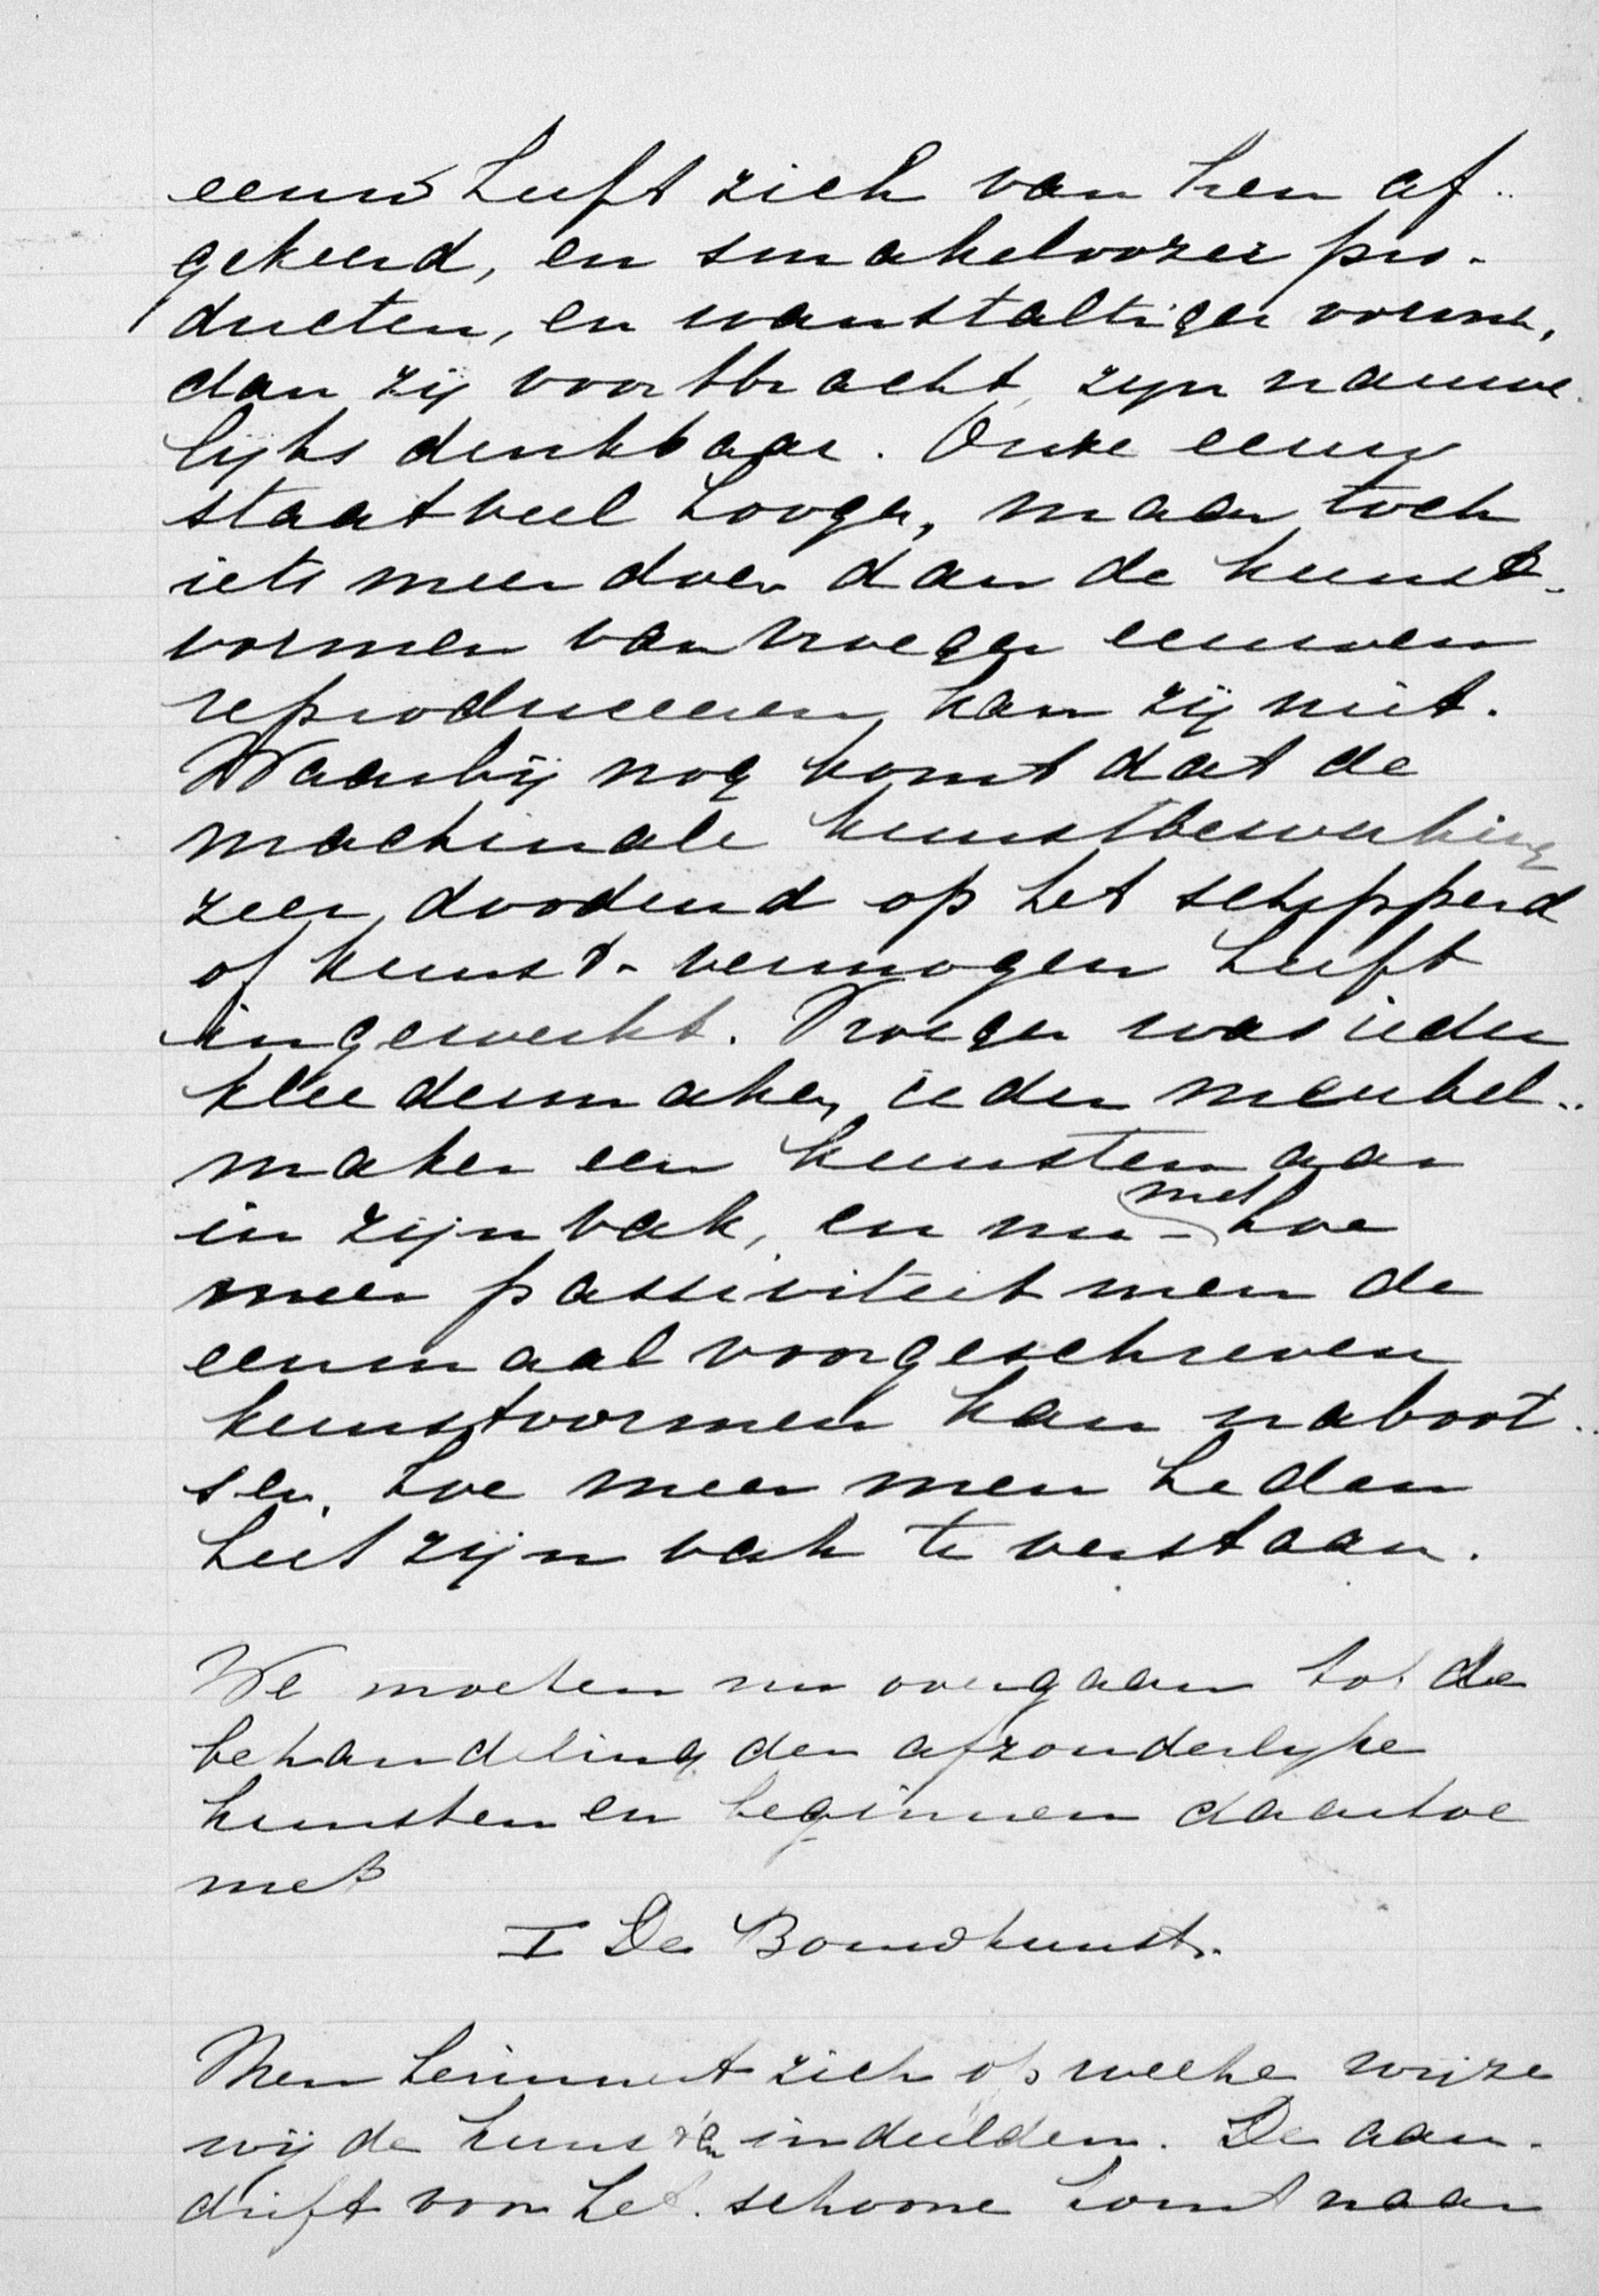 eeuw heeft zich van hen af-
gekeerd, en smakeloozer pro-
ducten, en wanstaltiger vormen,
dan zij voortbracht, zijn nauwe-
lijks denkbaar. Onze eeuw
staat veel hooger, maar toch
iets meer doen dan de kunst-
vormen van vroeger eeuwen
reproduceeren, kan zij niet.
Waarbij nog komt dat de
machinale kunstbewerking
zeer doodend op het scheppend
of kunst-vermogen heeft
ingewerkt. Vroeger was ieder
kleedermaker, ieder meubel-
maker een kunstenaar
in zijn vak, en nu - met hoe
meer passiviteit men de
eenmaal voorgeschreven
kunstvormen kan naboot-
sen, hoe meer men heden
heet zijn vak te verstaan.
We moeten nu overgaan tot de
behandeling der afzonderlijke
kunsten en beginnen daartoe
met
I De Bouwkunst.
Men herinnert zich op welke wijze
wij de kunsten indeelden. De aan-
drift voor het schoone komt naar